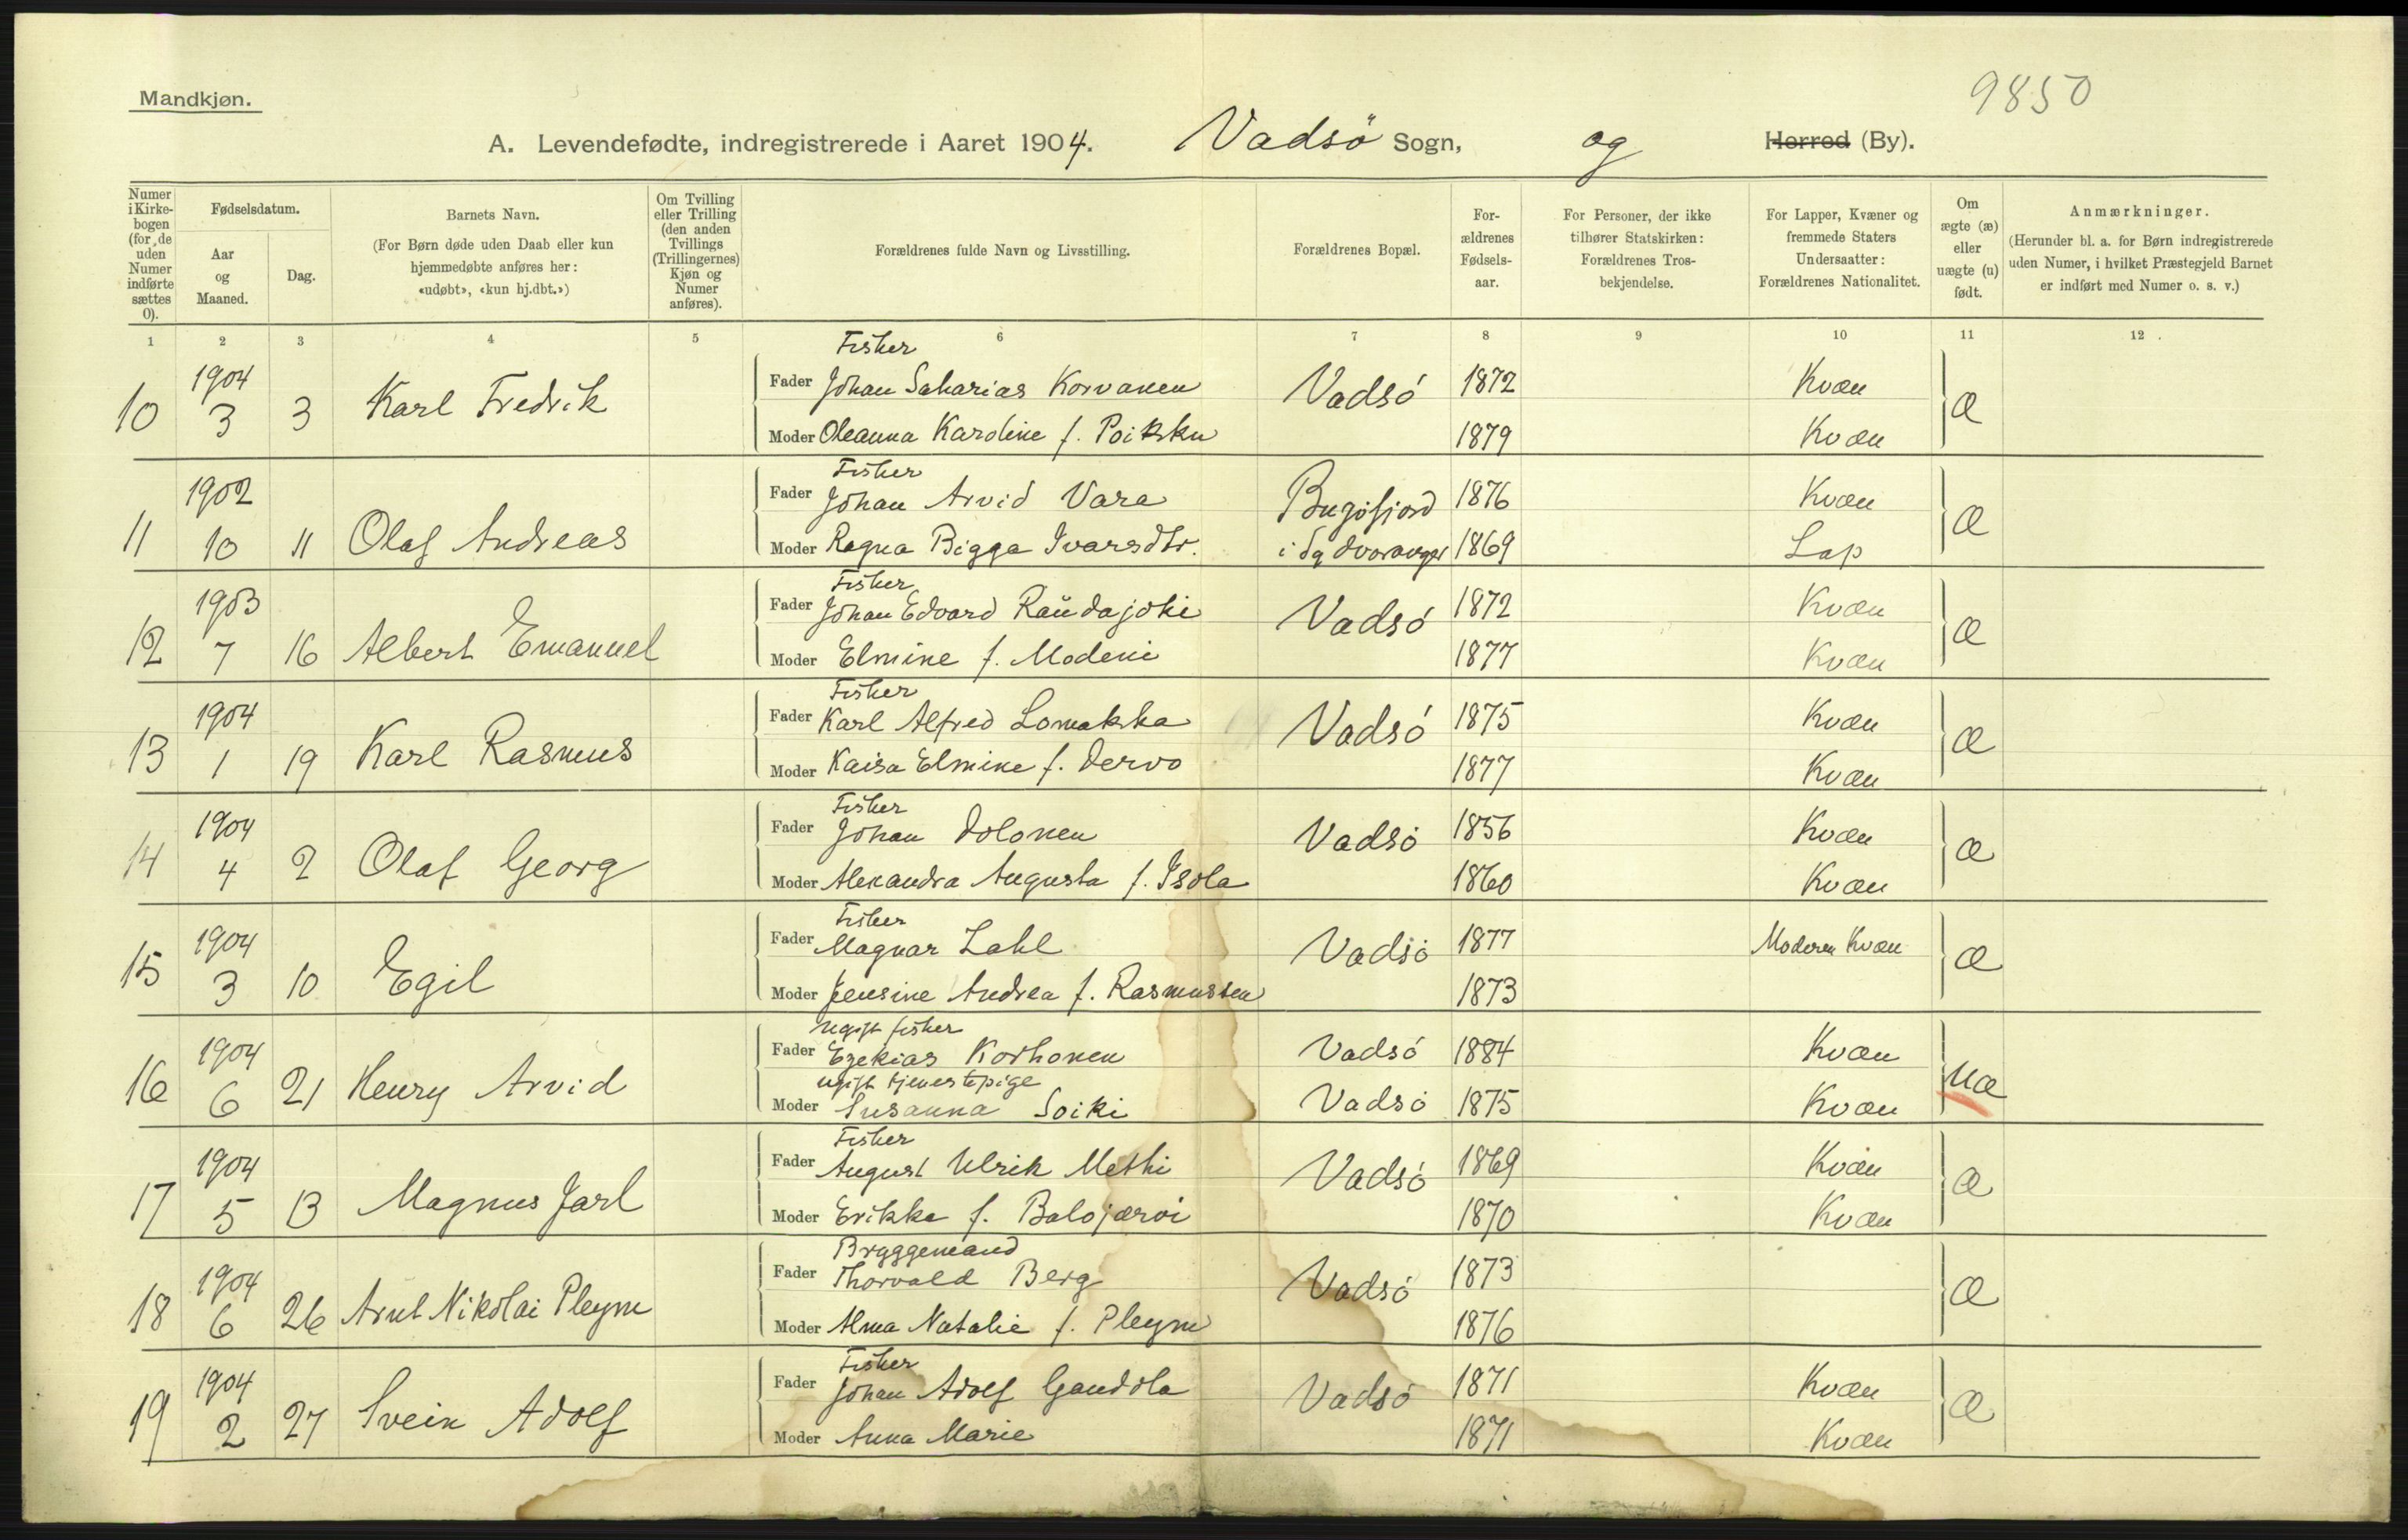 9850
Mandkjøn.
A. Levendefødte, indregistrerede i Aaret 1904. Vadsö Sogn, og Herred (By).
Numer i Kirke-bogen (for de uden Numer indførte sættes 0).
Fødselsdatum.
Aar og Maaned.
Dag.
Barnets Navn.
(For Børn døde uden Daab eller kun hjemmedøbte anføres her: «udøbt», «kun hj.dbt.»)
Om Tvilling eller Trilling (den anden Tvillings (Trillingernes) Kjøn og Numer anføres).
Forældrenes fulde Navn og Livsstilling.
Forældrenes Bopæl.
For-ældrenes Fødsels-aar.
For Personer, der ikke tilhører Statskirken: Forældrenes Tros-bekjendelse.
For Lapper, Kvæner og fremmede Staters Undersaatter: Forældrenes Nationalitet.
Om ægte (æ) eller uægte (u) født.
Anmærkninger.
(Herunder bl. a. for Børn indregistrerede uden Numer, i hvilket Præstegjeld Barnet er indført med Numer o. s. v.)
1 2 3 4 5 6 7 8 9 10 11 12
Fisker
10 1904 3 3 Karl Fredrik Fader Johan Saharias Korvanen Vadsó 1872 Kvæn æ
Moder Oleanna Karoline f. Poikku 1879 Kvæn
Fisker
11 1902 10 11 Olaf Andreas Fader Johan Arvid Vara Bugöfjord 1876 Kvæn æ
Moder Ragna Bigga Ivarsdtr. i Sydvaranger 1869 Lap
Fisker
12 1903 7 16 Albert Emanuel Fader Johan Edvard Raŭdajoki Vadsó 1872 Kvæn æ
Moder Elmine f. Modeni 1877 Kvæn
Fisker
13 1904 1 19 Karl Rasmus Fader Karl Alfred Lomakka Vadsó 1875 Kvæn æ
Moder Kaisa Elmine f. Dervo 1877 Kvæn
Fisker
14 1904 4 2 Olaf Georg Fader Johan Dolonen Vadsó 1856 Kvæn æ
Moder Alexandra Augusta f. Isola 1860 Kvæn
Fisker
15 1904 3 10 Egil Fader Magnar Zahl Vadsó 1877 Moderen Kvæn æ
Moder Jensine Andrea f. Rasmussen 1873
ugift fisker
16 1904 6 21 Henry Arvid Fader Ezekias Korhonen Vadsó 1884 Kvæn uæ
ugift tjenestepige
Moder Susanna Soiki Vadsó 1875 Kvæn
Fisker
17 1904 5 13 Magnus Jarl Fader August Ulrik Methi Vadsó 1869 Kvæn æ
Moder Erikka f. Balojærvi 1870 Kvæn
Bryggemand
18 1904 6 26 Arnt Nikolai Pleym Fader Thorvald Berg Vadsó 1873 æ
Moder Alma Natalie f. Pleym 1876
Fisker
19 1904 2 27 Svein Adolf Fader Johan Adolf Gandola Vadsó 1871 Kvæn æ
Moder Anna Marie 1871 Kvæn